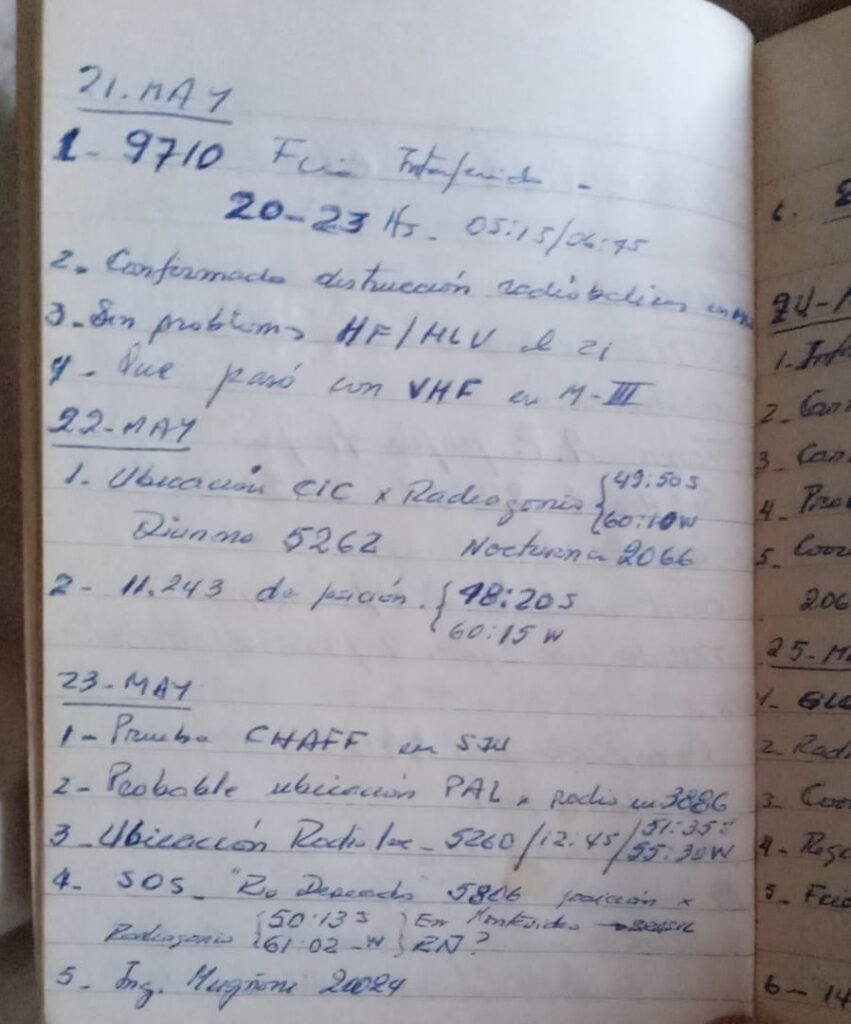 21.MAY
1- 9710 Fue Interferida -
20-23 Hs. 05:15/06:45
2. Confirmado destrucción
3- Sin problemas HF/HLV el 21
4- Que pasó con VHF en M-III
22-MAY
1. Ubicación CIC x Radiogonio {49:50S
60:10W
Diurna 5262 Nocturna 2066
2- 11.243 da posición. {48:20S
60:15W
23-MAY
1- Prueba CHAFF en SJU
2- Probable ubicación PAL x radio en 3886
3-Ubicación Radio - 5260/12:45/51:35S
55:30W
4- SOS- "Rio Deseado" 5806 posición x
Radiogonio {50:13S } En Montevideo
61:02-W } RN?
5- Ing. Mugnone 20024
6.
24-M
1-
2-
3
4-
5.
206
25-M
1-
2-
3-
4-
5-
6-14